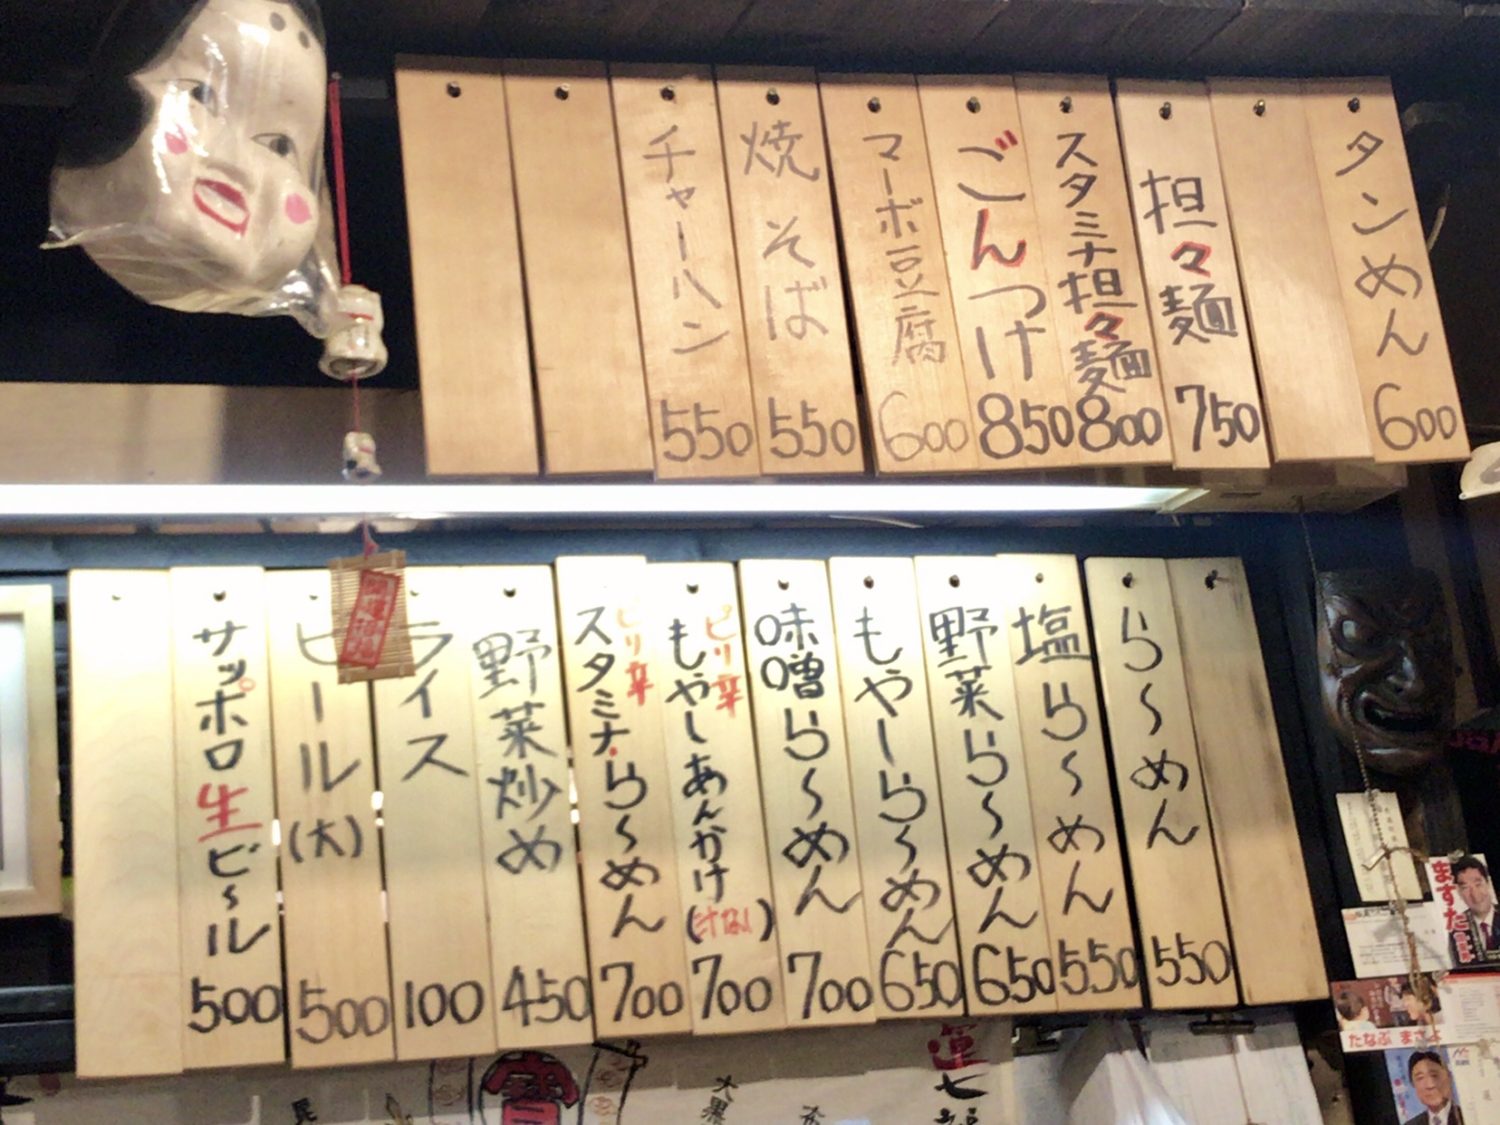 タンめん 600
担々麺 750
スタミナ担々麺 800
ごんつけ 850
マーボ豆腐 600
焼そば 550
チャーハン 550
ら〜めん 550
塩ら〜めん 550
野菜ら〜めん 650
もやしら〜めん 650
味噌ら〜めん 700
ピリ辛 もやしあんかけ(汁なし) 700
ピリ辛 スタミナら〜めん 700
野菜炒め 450
ライス 100
ビール(大) 500
サッポロ生ビール 500
ますだ
たなぶ まさよ
大黒